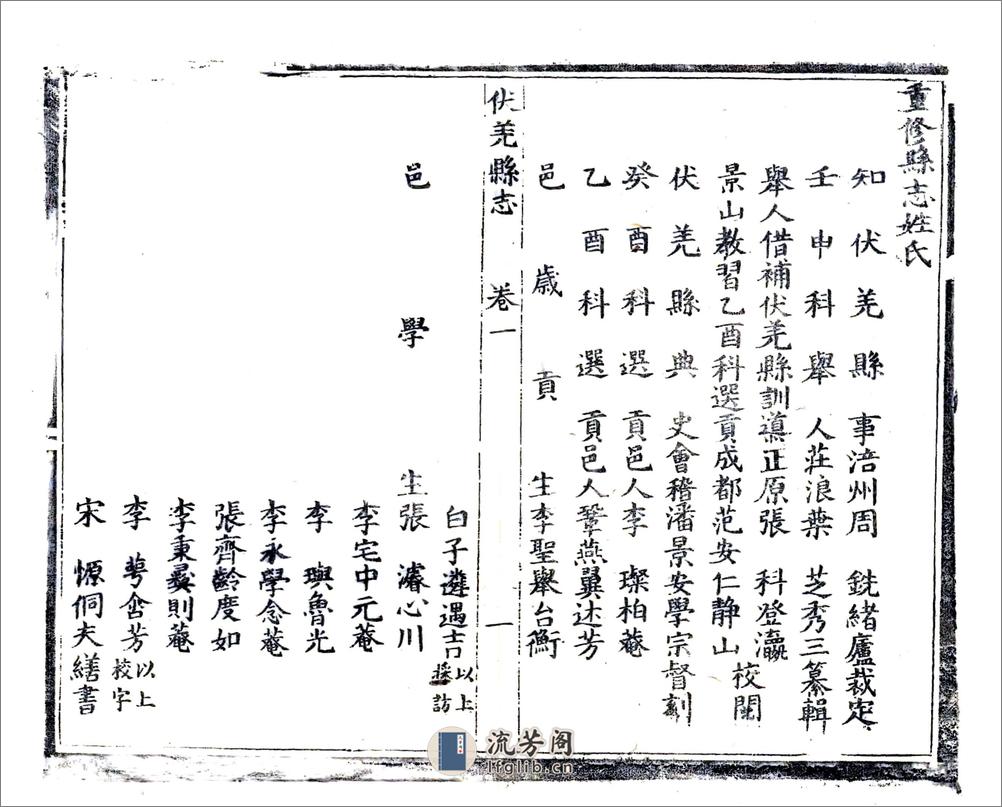 重修縣志姓氏
知伏羌縣事涪州周　銑緒廬裁定
壬申科舉人莊浪葉　芝秀三纂輯
舉人借補伏羌縣訓導正原張　科登瀛
景山教習乙酉科選貢成都范安仁静山校閱
伏羌縣典史會稽潘景安學宗督刻
癸酉科選貢邑人李　璨柏菴
乙酉科選貢邑人鞏燕翼述芳
邑歲貢生李聖舉台衡
伏羌縣志　卷一　一
白子遴遇吉以上採訪
邑學生張　濬心川
李宅中元菴
李　璵魯光
李永學念菴
張齊齡度如
李秉彝則菴
李　萼含芳以上校字
宋　愿侗夫繕書
流芳阁
lfglib.cn